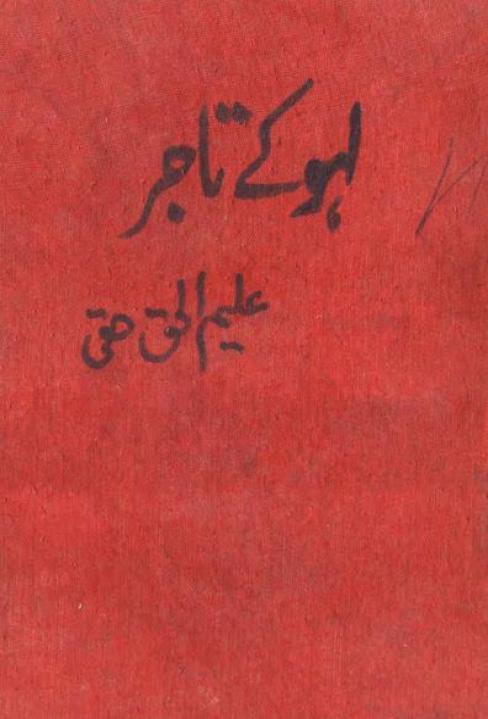 لہو کے تاجر
علیم الحق حقی